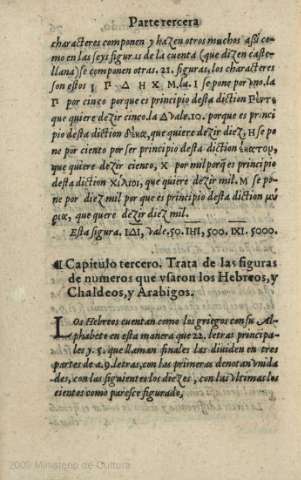 Parte tercera
characteres componen y hazen otros muchos assi co-
mo en las seys figuras de la cuenta (que dizen caste-
llana) se componen otras. 21. figuras, los characteres
son estos I Γ. Δ H X M. la. I se pone por vno. la
Γ por cinco porque es principio desta diction Πέντε
que quiere dezir cinco. la Δ vale. 10. porque es princi
pio desta diction δέκα, que quiere dezir diez, H se po
ne por ciento por ser principio desta diction ἑκατον,
que quiere dezir ciento, X por mil porque es principio
desta diction Χίλιοι, que quiere dezir mil. M se po-
ne por diez mil por que es principio desta diction μύ
ρια, que quere dezir diez mil.
Esta figura. IΔI, vale. 50. IHI, 500. IXI. 5000.
¶ Capitulo tercero. Trata de las figuras
de numeros que vsaron los Hebreos, y
Chaldeos, y Arabigos.
LOs Hebreos cuentan como los griegos con su Al-
phabeto en esta manera que 22. letras principa-
les y. 5. que llaman finales las diuiden en tres
partes de a. 9. letras, con las primeras denotan vnida
des, con las siguientes los diezes, con las vltimas los
cientos como paresce figurado,
2009 Ministerio de Cultura